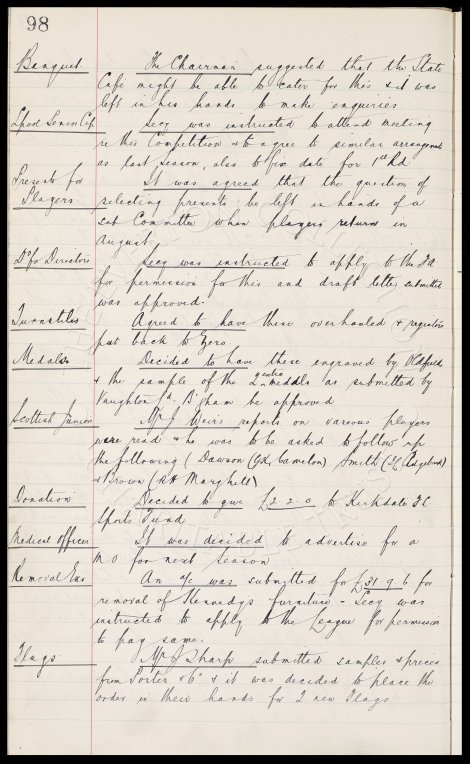 98
Banquet. The Chairman suggested that the State
Café might be able to cater for this & it was
left in his hands to make enquiries
Lpool Senior Cup Secy was instructed to attend meeting
re this Competition & to agree to similar arrangements
as last season, also to fix date for 1st Rd.
Presents for It was agreed that the question of
Players selecting presents be left in hands of a
sub Committee when players return in
August.
Do for Directors Secy was instructed to apply to the FA
for permission for this and draft letter submitted
was approved.
Turnstiles Agreed to have these overhauled & registers
put back to Zero
Medals Decided to have these engraved by Oldfield
& the sample of the 2 extra medals as submitted by
Vaughton Ld B'gham be approved
Scottish Juniors Mr J Weirs reports on various players
were read & he was to be asked to follow up
the following (Dawson (Camelon) Smith
& Brown (RH Maryhill)
Donation Decided to give £2.2.0 to Kirkdale FC
Sports Fund
Medical Officer It was decided to advertise for a
M O for next season
Removal Exs An a/c was submitted for £31.9.6 for
removal of Kennedys furniture - Secy was
instructed to apply to the League for permission
to pay same.
Flags Mr J Sharp submitted samples & prices
from Porter & Co & it was decided to place the
order in their hands for 2 new Flags